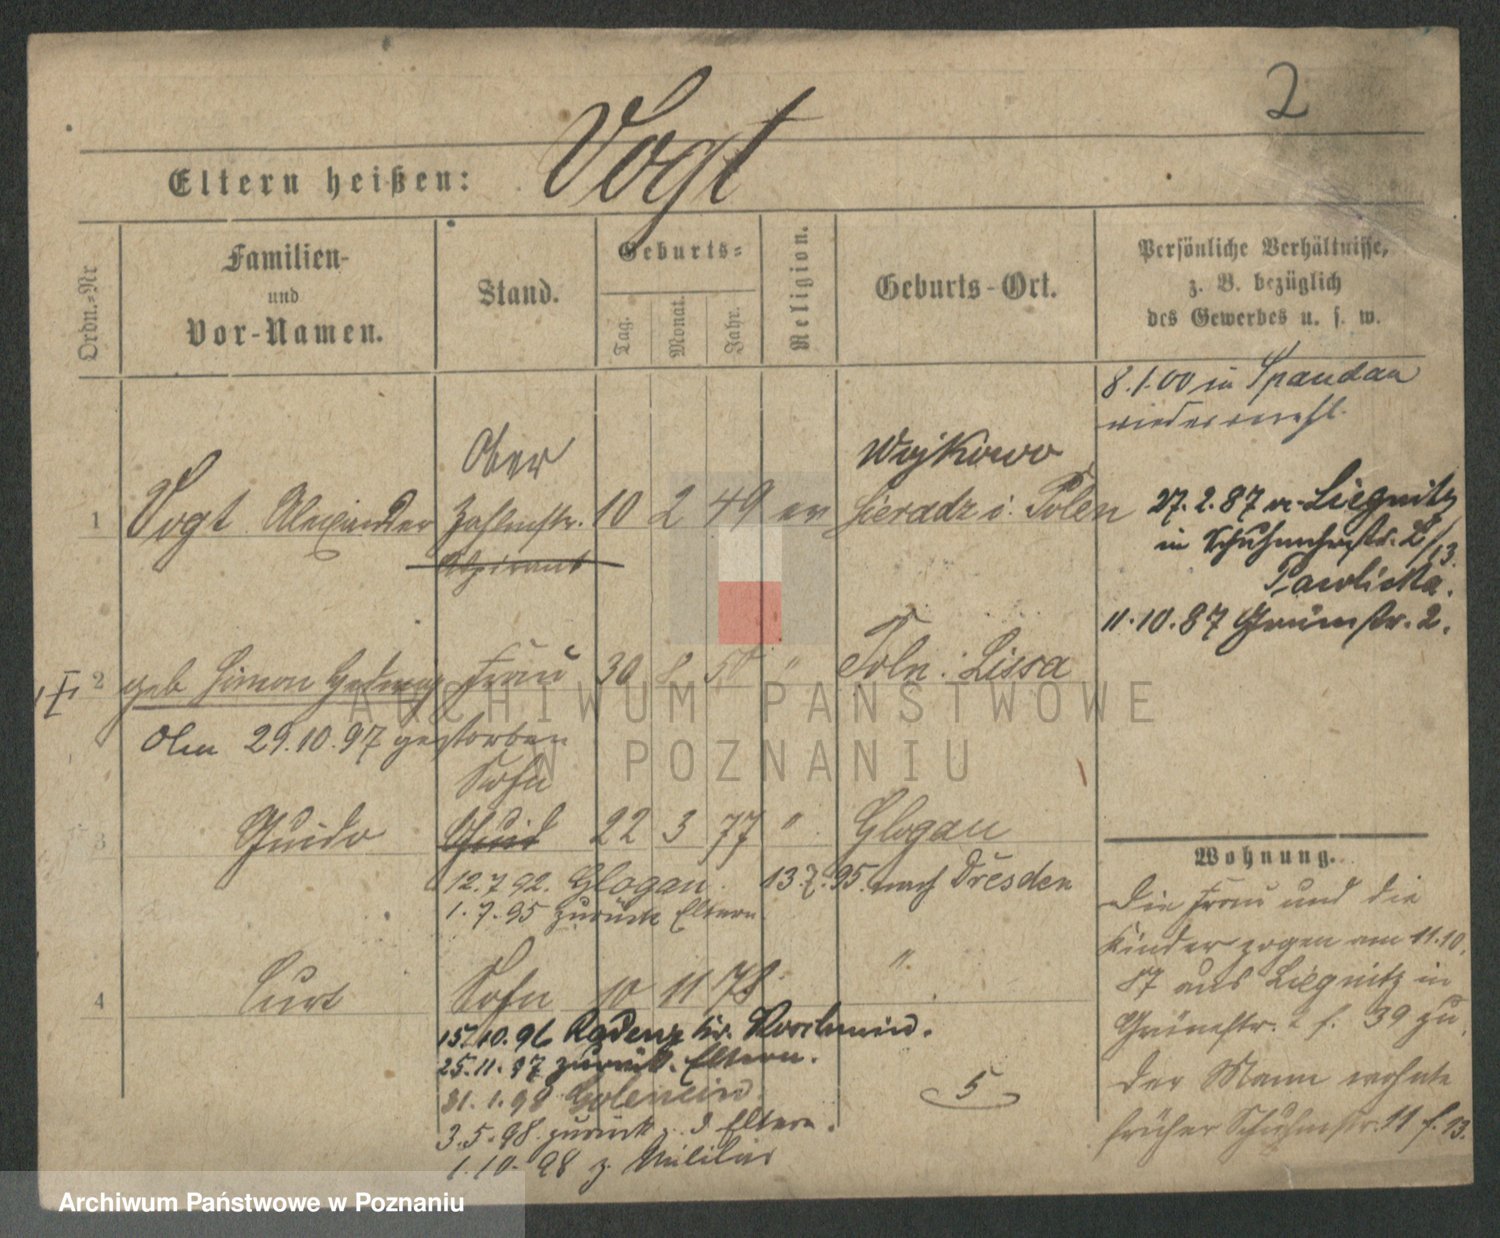 2
Eltern heißen: Vogt
Ordn.-Nr
Familien-
und
Vor-Namen.
Stand.
Geburts-
Tag.
Monat.
Jahr.
Religion.
Geburts-Ort.
Persönliche Verhältnisse,
z. B. bezüglich
des Gewerbes u. s. w.
8.1.00 in Spandau
wiederverehl.
Ober
Wojkowo
1 Vogt Alexander Zahlmstr. 10 2 49 ev Sieradz i. Polen
Aspirant
27.2.87 v. Liegnitz
in Schuhmacherstr. 2/13.
Pawlicka.
11.10.87 Grünstr. 2.
2 geb Simon Hedwig Frau 30 8 50 " Poln. Lissa
29.10.97 gestorben
Sohn
3 Guido Guid 22 3 77 " Glogau
12.7.92. Glogau. 13.7.95. nach Dresden
1.7.95 zurück Eltern
4 Curt Sohn 10 11 78 "
15.10.96 Kr.
25.11.97 zurück. Eltern.
31.1.98
3.5.98 zurück z. d. Eltern.
1.10.98 z. Militär
5
Wohnung.
Die Frau und die
Kinder zogen am 11.10.
87 aus Liegnitz in
Grünestr. 2 f. 39 zu.
Der Mann wohnte
früher Schuhmstr. 11 f. 13.
ARCHIWUM PAŃSTWOWE
W POZNANIU
Archiwum Państwowe w Poznaniu